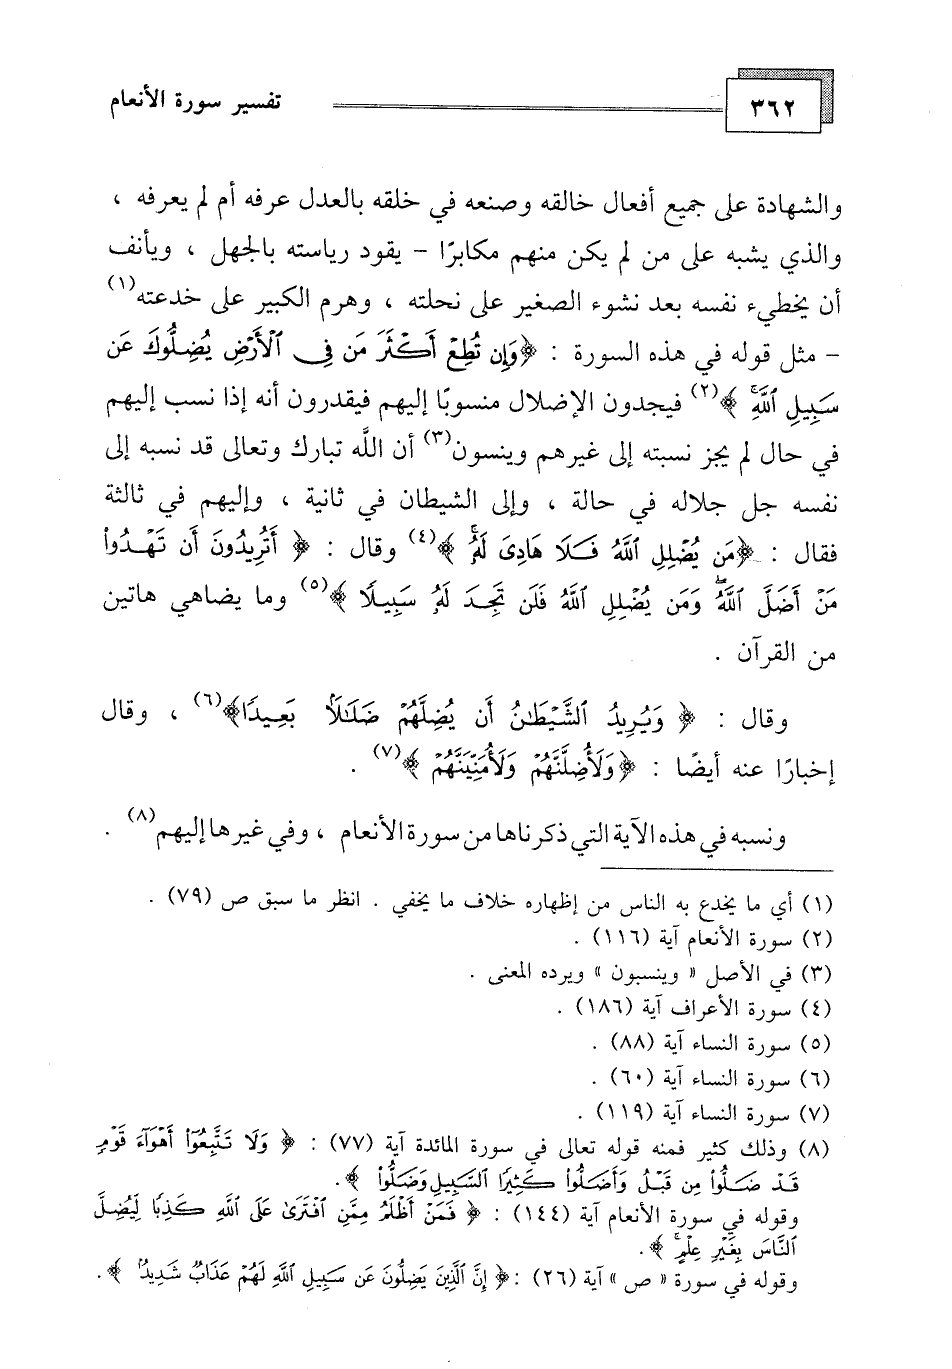 ٣٦٢
تفسير سورة الأنعام
والشهادة على جميع أفعال خالقه وصنعه في خلقه بالعدل عرفه أم لم يعرفه ،
والذي يشبه على من لم يكن منهم مكابرًا - يقود رياسته بالجهل ، ويأنف
أن يخطيء نفسه بعد نشوء الصغير على نحلته ، وهرم الكبير على خدعته(١)
- مثل قوله في هذه السورة : ﴿وَإِن تُطِعْ أَكْثَرَ مَن فِى ٱلْأَرْضِ يُضِلُّوكَ عَن
سَبِيلِ ٱللَّهِ ۚ ﴾(٢) فيجدون الإضلال منسوبًا إليهم فيقدرون أنه إذا نسب إليهم
في حال لم يجز نسبته إلى غيرهم وينسون(٣) أن اللَّه تبارك وتعالى قد نسبه إلى
نفسه جل جلاله في حالة ، وإلى الشيطان في ثانية ، وإليهم في ثالثة
فقال : ﴿مَن يُضْلِلِ ٱللَّهُ فَلَا هَادِىَ لَهُۥ ۚ ﴾(٤) وقال : ﴿ أَتُرِيدُونَ أَن تَهْدُوا۟
مَنْ أَضَلَّ ٱللَّهُ ۖ وَمَن يُضْلِلِ ٱللَّهُ فَلَن تَجِدَ لَهُۥ سَبِيلًا ﴾(٥) وما يضاهي هاتين
من القرآن .
وقال : ﴿ وَيُرِيدُ ٱلشَّيْطَٰنُ أَن يُضِلَّهُمْ ضَلَٰلًۢا بَعِيدًا﴾(٦) ، وقال
إخبارًا عنه أيضًا : ﴿وَلَأُضِلَّنَّهُمْ وَلَأُمَنِّيَنَّهُمْ ﴾(٧) .
ونسبه في هذه الآية التي ذكرناها من سورة الأنعام ، وفي غيرها إليهم(٨) .
(١) أي ما يخدع به الناس من إظهاره خلاف ما يخفي . انظر ما سبق ص (٧٩) .
(٢) سورة الأنعام آية (١١٦) .
(٣) في الأصل « وينسبون » ويرده المعنى .
(٤) سورة الأعراف آية (١٨٦) .
(٥) سورة النساء آية (٨٨) .
(٦) سورة النساء آية (٦٠) .
(٧) سورة النساء آية (١١٩) .
(٨) وذلك كثير فمنه قوله تعالى في سورة المائدة آية (٧٧) : ﴿ وَلَا تَتَّبِعُوٓا۟ أَهْوَآءَ قَوْمٍ
قَدْ ضَلُّوا۟ مِن قَبْلُ وَأَضَلُّوا۟ كَثِيرًا ٱلسَّبِيلِ وَضَلُّوا۟ ﴾ .
وقوله في سورة الأنعام آية (١٤٤) : ﴿ فَمَنْ أَظْلَمُ مِمَّنِ ٱفْتَرَىٰ عَلَى ٱللَّهِ كَذِبًا لِّيُضِلَّ
ٱلنَّاسَ بِغَيْرِ عِلْمٍ ۚ ﴾ .
وقوله في سورة « ص » آية (٢٦) : ﴿ إِنَّ ٱلَّذِينَ يَضِلُّونَ عَن سَبِيلِ ٱللَّهِ لَهُمْ عَذَابٌ شَدِيدٌۢ ﴾ .